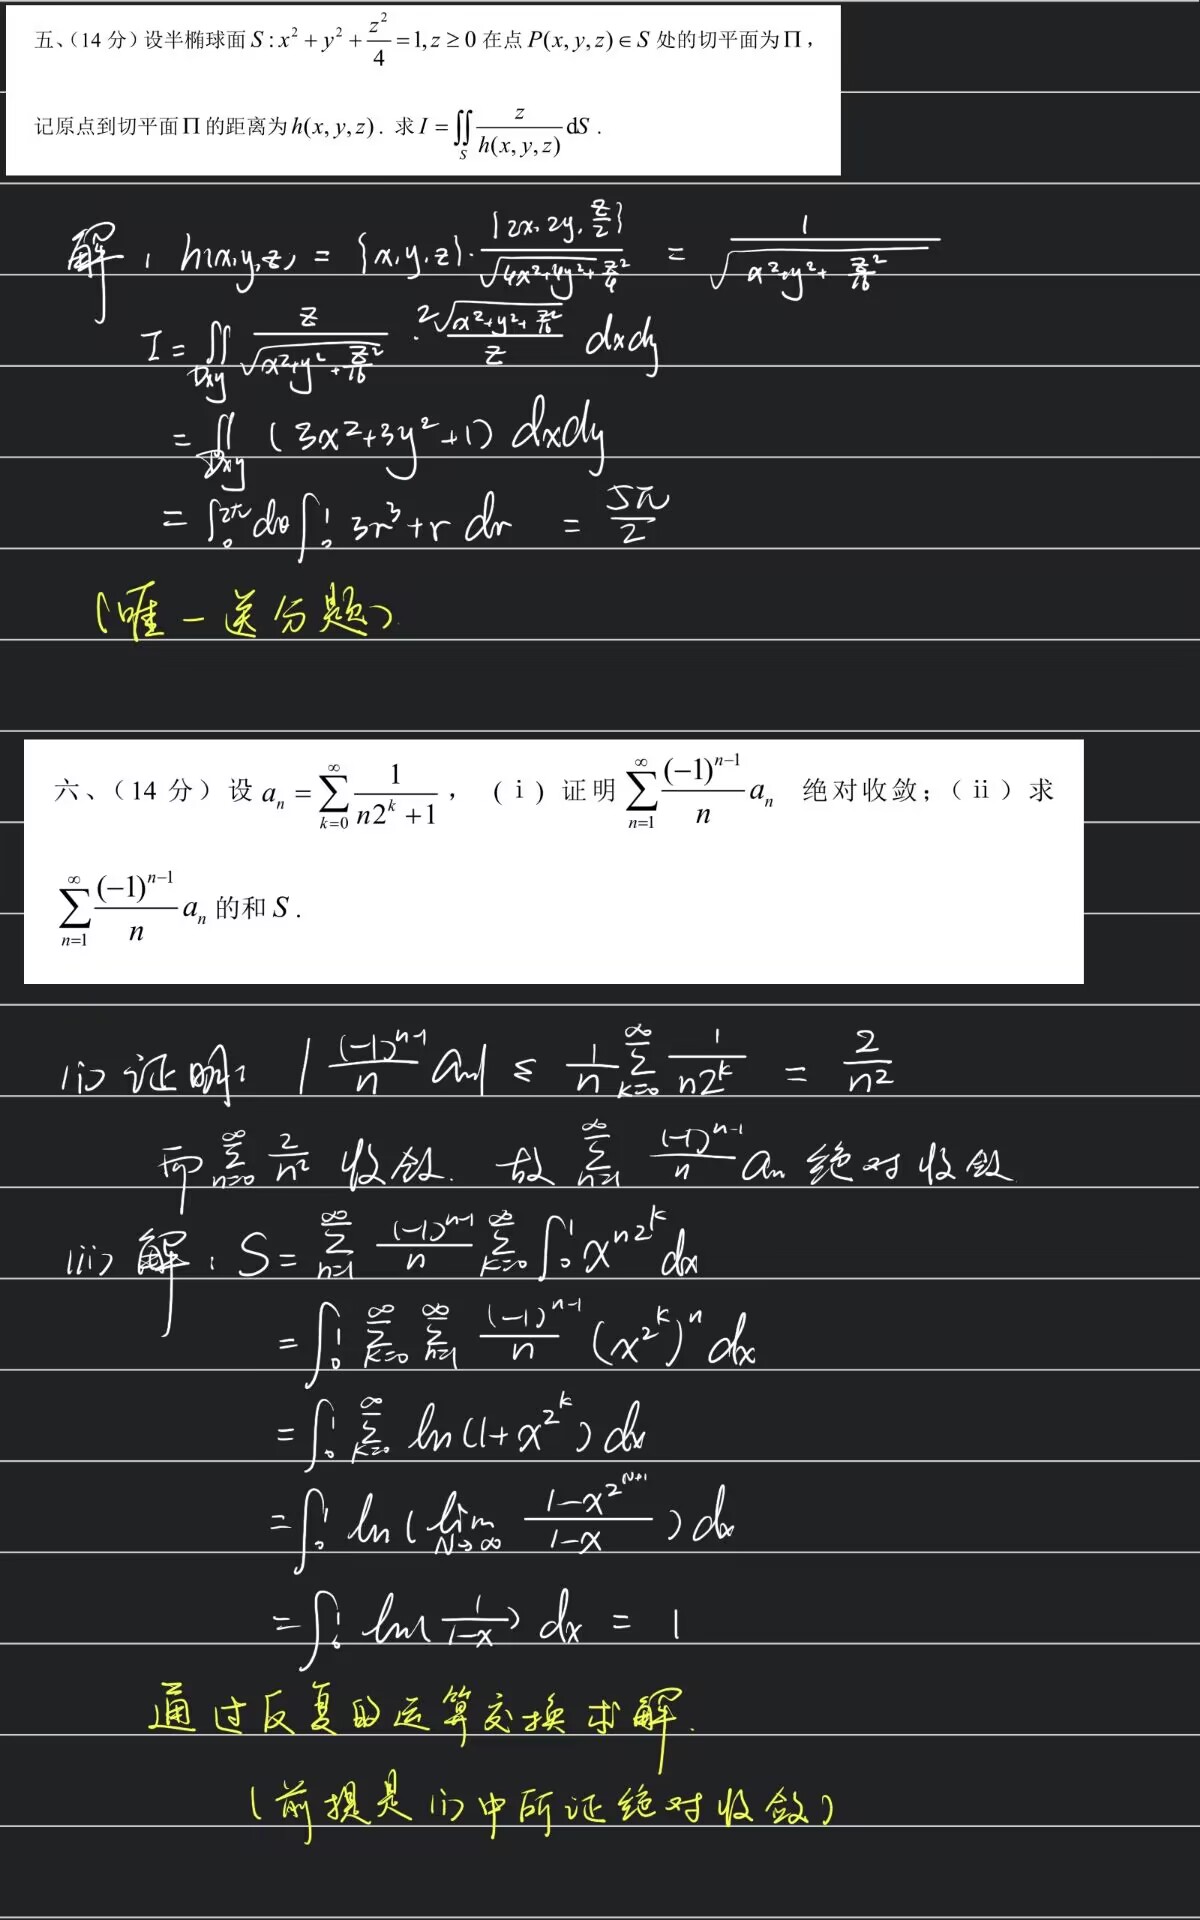 五、(14 分)设半椭球面 S : x² + y² + z²/4 = 1, z ≥ 0 在点 P(x, y, z) ∈ S 处的切平面为 Π，
记原点到切平面 Π 的距离为 h(x, y, z). 求 I = ∬_S z/h(x, y, z) dS.
解: h(x,y,z) = {x,y,z}·{2x, 2y, z/2}/√(4x²+4y²+z²/4) = 1/√(x²+y²+z²/16)
I = ∬_Dxy z/√(x²+y²+z²/16) · 2√(x²+y²+z²/16)/z dxdy
= ∬_Dxy (3x²+3y²+1) dxdy
= ∫₀^2π dθ ∫₀¹ 3r³+r dr = 5π/2
(唯一送分题)
六、(14 分) 设 a_n = ∑_{k=0}^{∞} 1/(n2^k + 1)， (ⅰ) 证明 ∑_{n=1}^{∞} (−1)^{n−1}/n a_n 绝对收敛；(ⅱ) 求
∑_{n=1}^{∞} (−1)^{n−1}/n a_n 的和 S .
(i) 证明: |(-1)^{n-1}/n a_n| ≤ 1/n ∑_{k=0}^{∞} 1/(n2^k) = 2/n²
而 ∑_{n=0}^{∞} 2/n² 收敛. 故 ∑_{n=1}^{∞} (-1)^{n-1}/n a_n 绝对收敛
(ii) 解: S = ∑_{n=1}^{∞} (-1)^{n-1}/n ∑_{k=0}^{∞} ∫₀¹ x^{n2^k} dx
= ∫₀¹ ∑_{k=0}^{∞} ∑_{n=1}^{∞} (-1)^{n-1}/n (x^{2^k})^n dx
= ∫₀¹ ∑_{k=0}^{∞} ln(1+x^{2^k}) dx
= ∫₀¹ ln(lim_{N→∞} (1-x^{2^{N+1}})/(1-x)) dx
= ∫₀¹ ln(1/(1-x)) dx = 1
通过反复的运算交换求解.
(前提是(i)中所证绝对收敛)